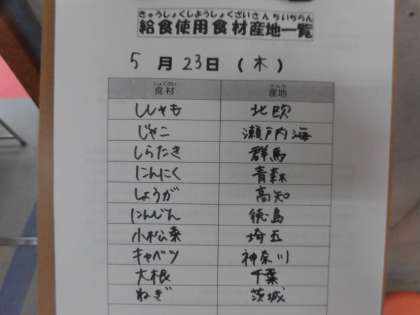 きゅうしょくしようしょくざいさんちいちらん
給食使用食材産地一覧
5月23日(木)
しょくざい さんち
食材 産地
ししゃも 北欧
じゃこ 瀬戸内海
しらたき 群馬
にんにく 青森
しょうが 高知
にんじん 徳島
小松菜 埼玉
キャベツ 神奈川
大根 千葉
ねぎ 茨城